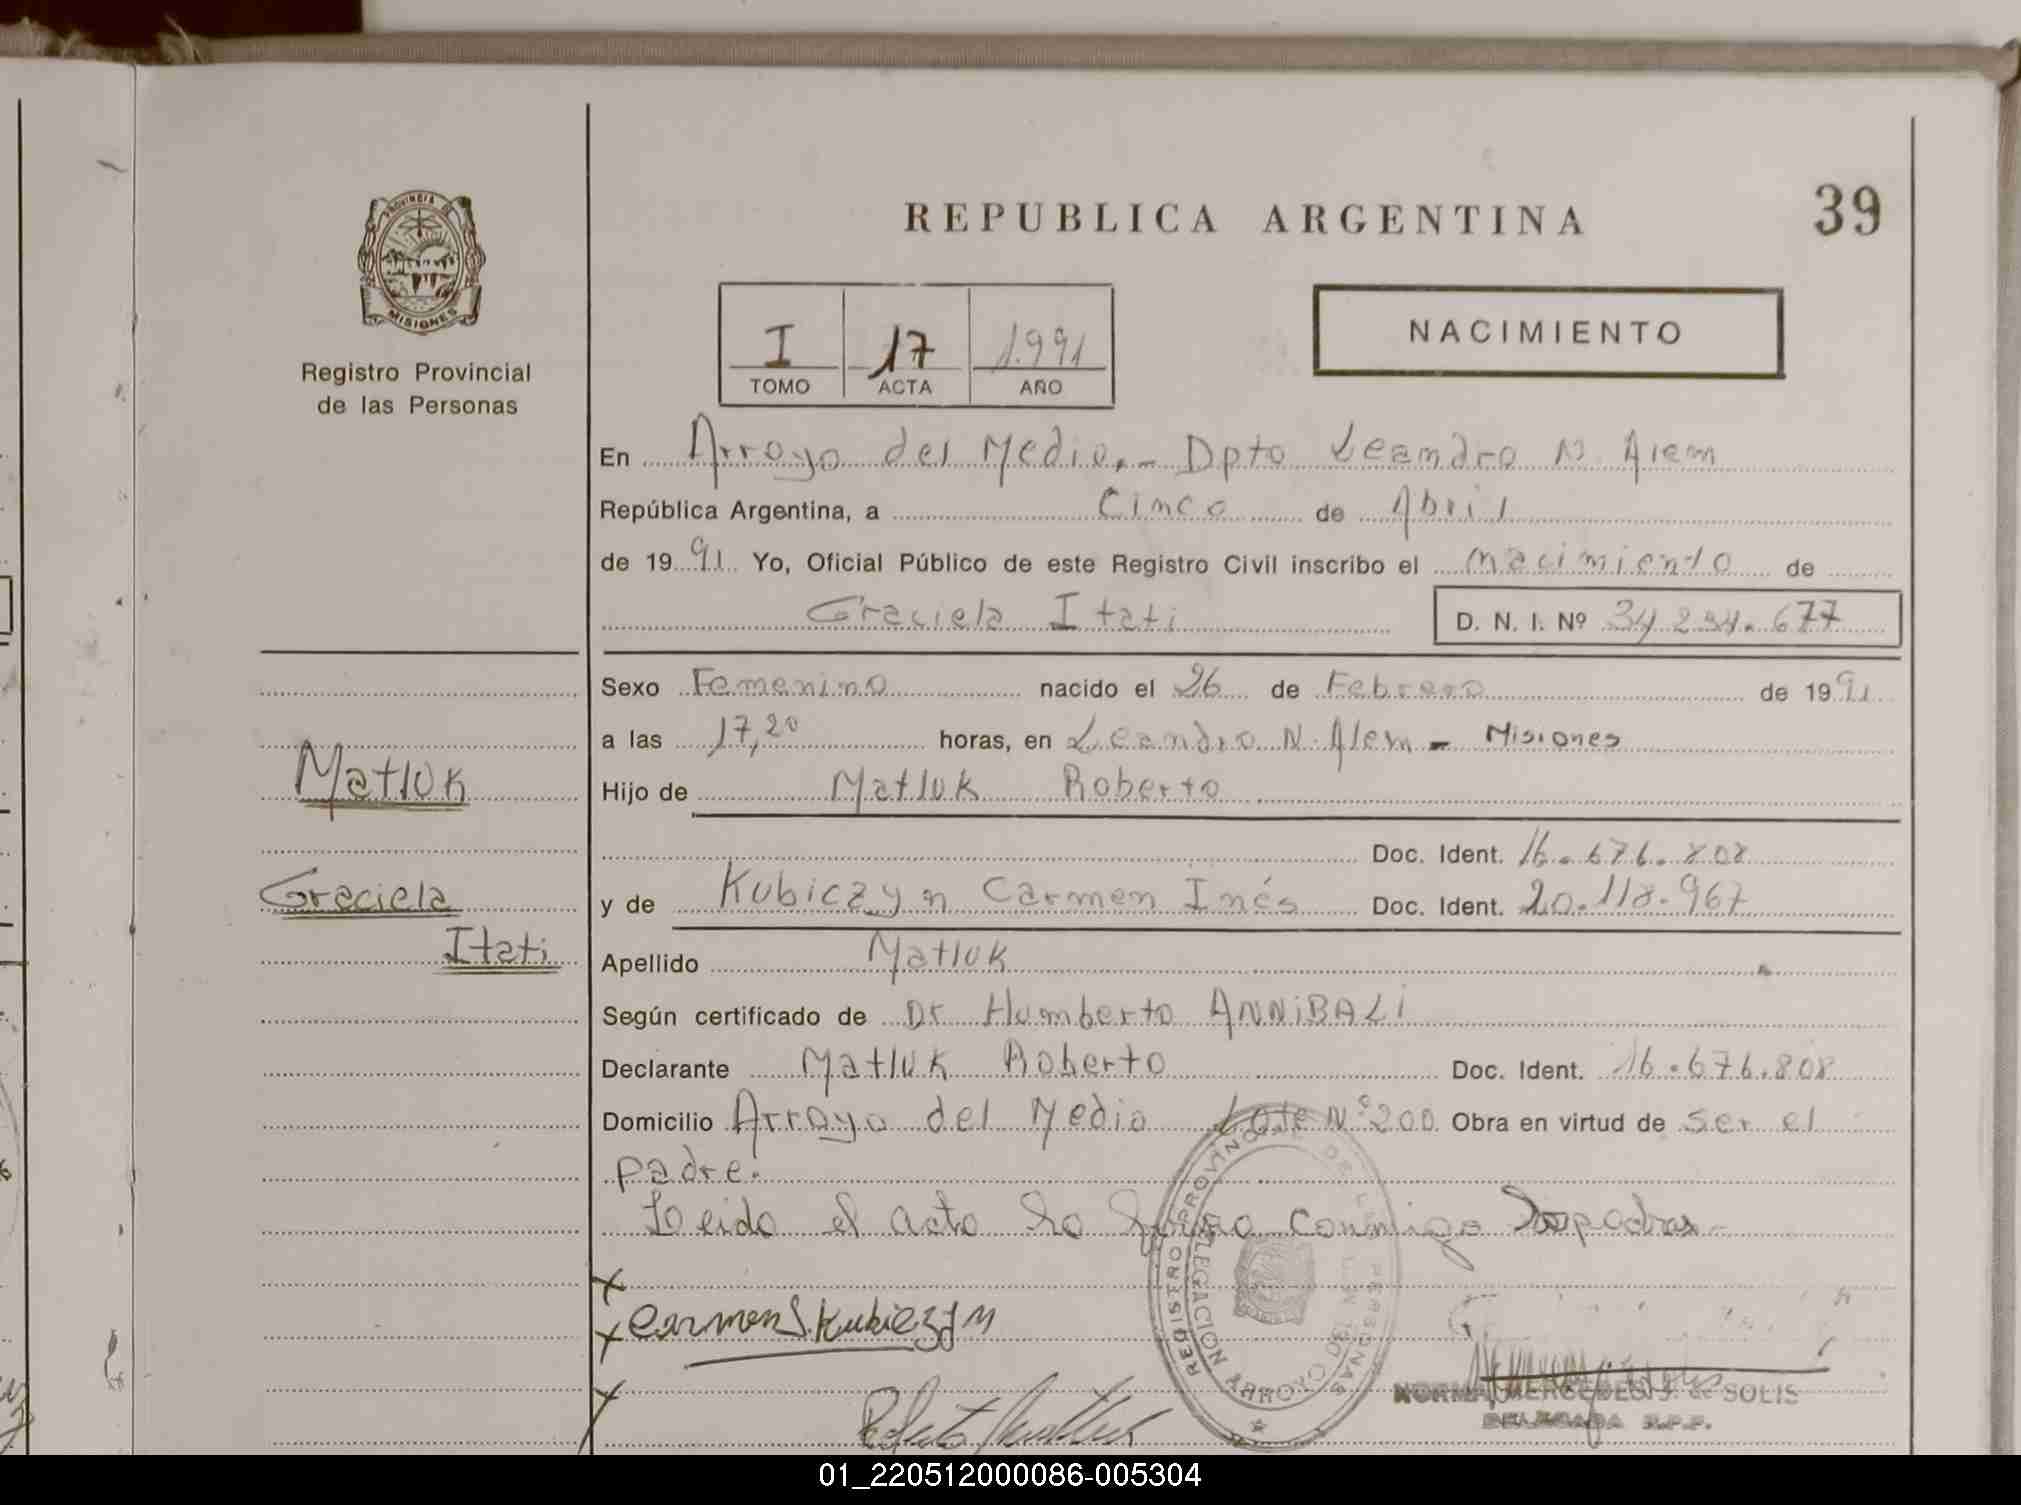 PROVINCIA DE
MISIONES
Registro Provincial
de las Personas
REPUBLICA ARGENTINA
39
I 17 1.991
TOMO ACTA AÑO
NACIMIENTO
En Arroyo del Medio.- Dpto Leandro N. Alem
República Argentina, a Cinco de Abril
de 19 91 Yo, Oficial Público de este Registro Civil inscribo el nacimiento de
Graciela Itati
D. N. I. Nº 34.294.677
Sexo Femenino nacido el 26 de Febrero de 19 91
a las 17,20 horas, en Leandro N. Alem - Misiones
Hijo de Matluk Roberto
Doc. Ident. 16.676.808
y de Kubiczyn Carmen Inés Doc. Ident. 20.118.967
Apellido Matluk
Según certificado de Dr Humberto ANNiBALi
Declarante Matluk Roberto Doc. Ident. 16.676.808
Domicilio Arroyo del Medio Lote Nº 200 Obra en virtud de ser el
padre.
Leido el acta lo firma conmigo los padres
Matluk
Graciela
Itati
Carmen I. Kubiczyn
REGISTRO PROVINCIAL DE LAS PERSONAS
DELEGACION ARROYO
NORMA MERCEDES de SOLIS
DELEGADA R.P.P.
01_220512000086-005304